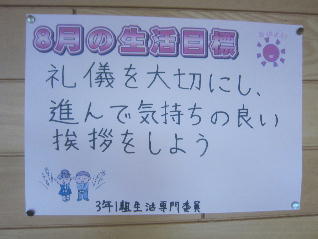 8月の生活目標
礼儀を大切にし、
進んで気持ちの良い
挨拶をしよう
3年1組生活専門委員